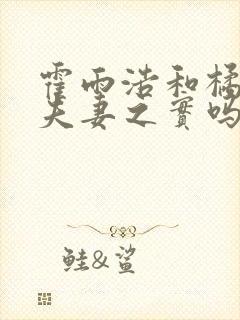 霍雨浩和橘
夫妻之實吗
鲑&鲨